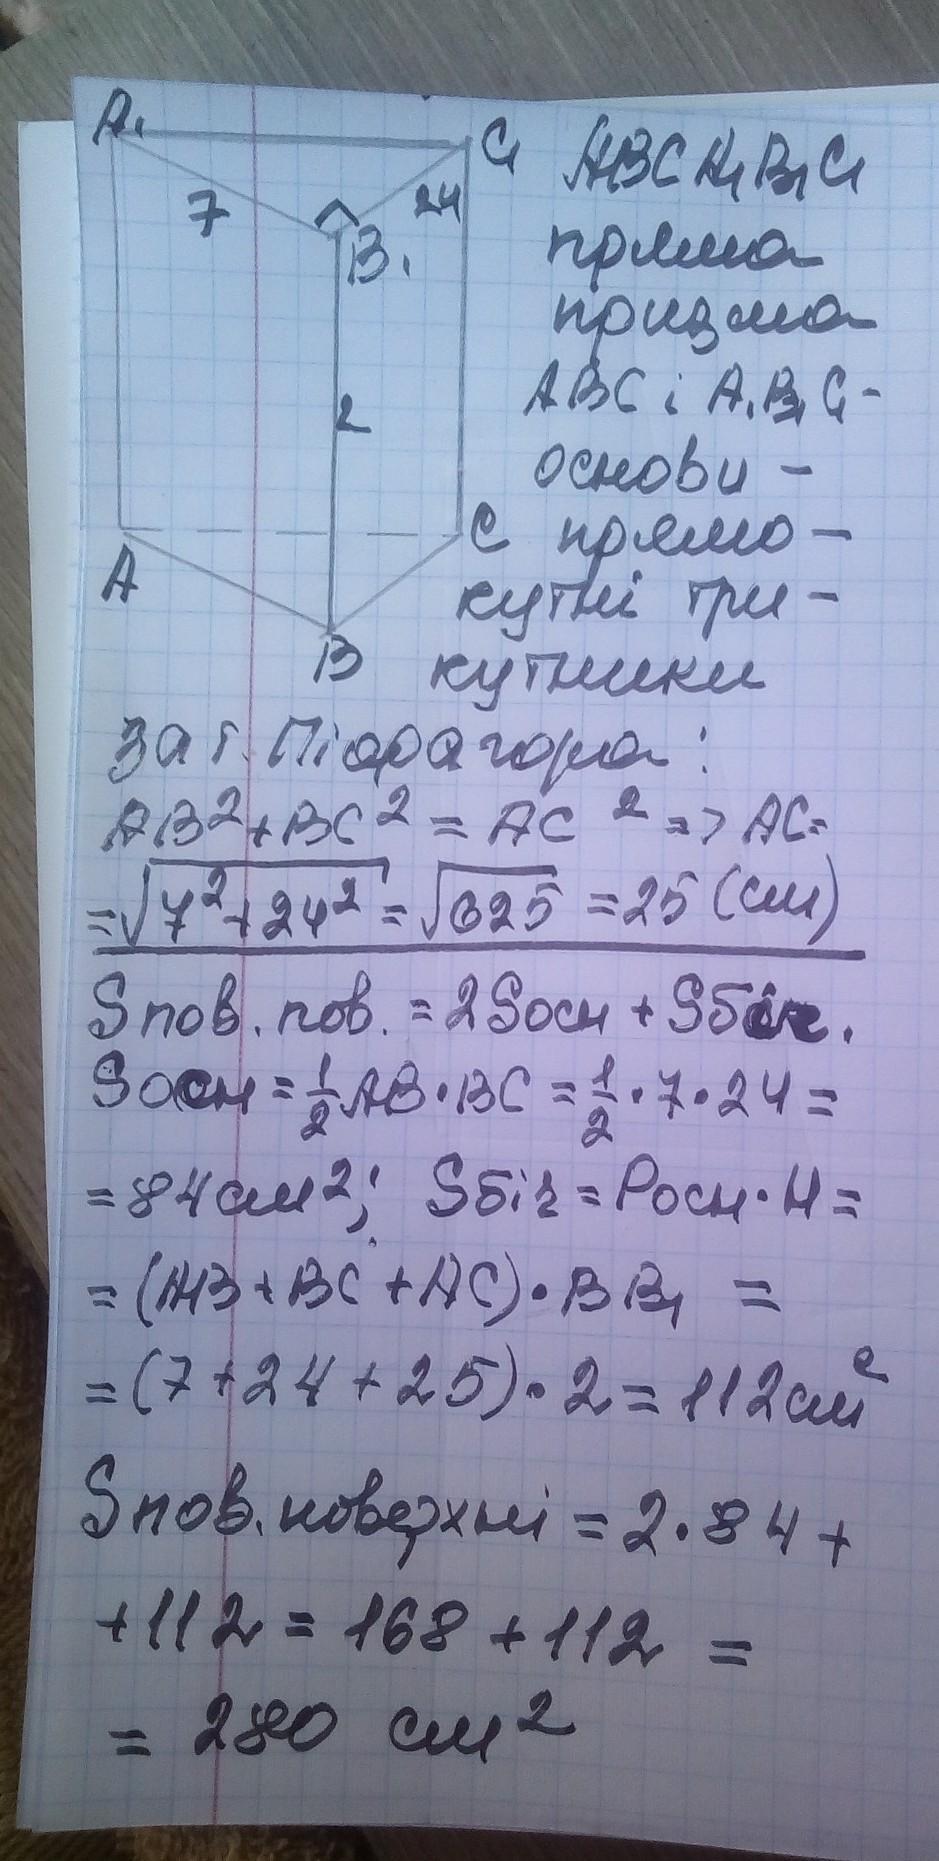 A₁
C₁
7
24
B₁
2
A
C
B
ABCA₁B₁C₁
пряма
призма
ABC і A₁B₁C₁-
основи -
прямо-
кутні три-
кутники
За т. Піфагора:
AB² + BC² = AC² => AC=
=√7²+24² = √625 = 25 (см)
Sпов. пов. = 2Sосн + Sбіч.
Sосн = 1/2 AB·BC = 1/2·7·24 =
= 84 см²; Sбіч = Pосн·H =
= (AB + BC + AC)·BB₁ =
= (7+24+25)·2 = 112 см²
Sпов. поверхні = 2·84 +
+112 = 168 + 112 =
= 280 см²